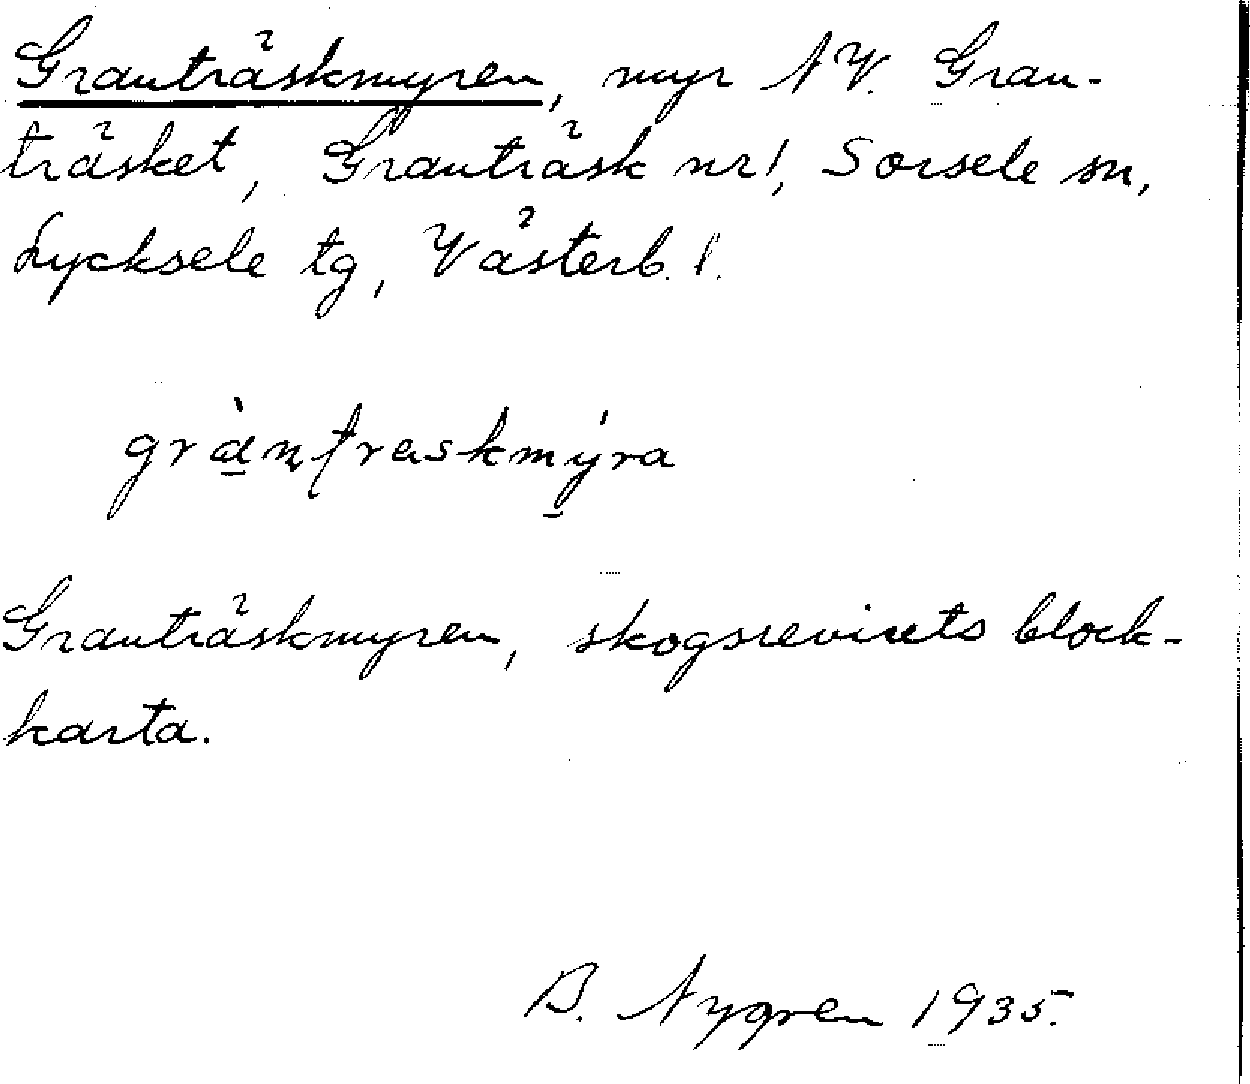 Granträskmyren, myr NV. Gran-
träsket, Granträsk nr 1, Sorsele sn,
Lycksele tg, Västerb. l.
gràn̩traskmýra
Granträskmyren, skogsrevirets block-
karta.
B. Nygren 1935.